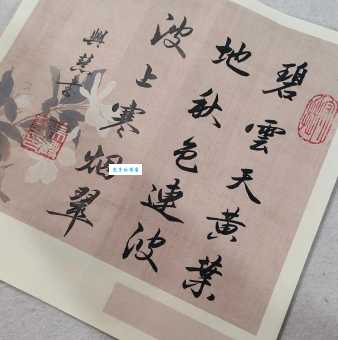 碧雲天黃葉
地秋色連波
波上寒烟翠